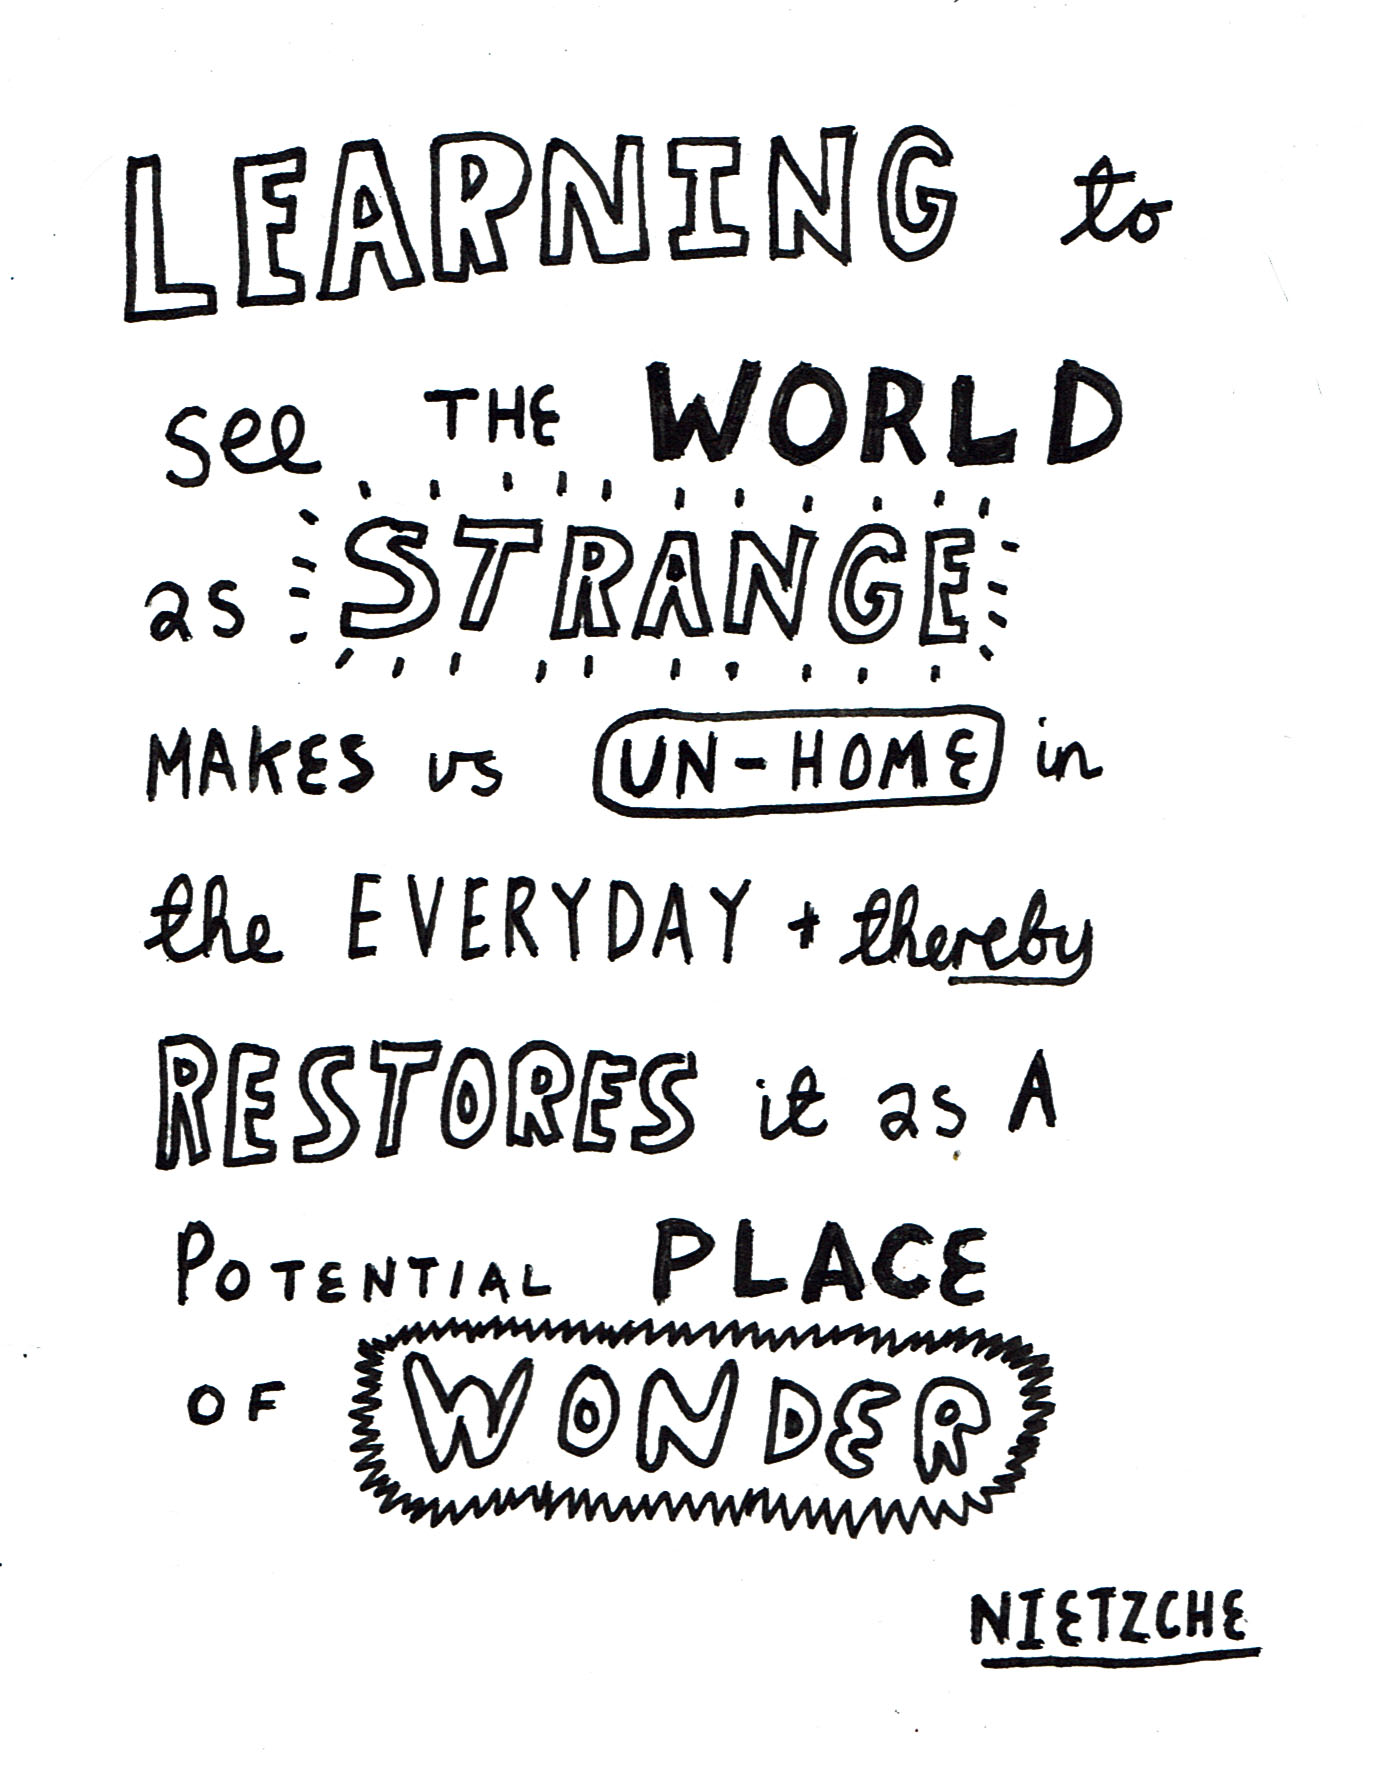 LEARNING to
see THE WORLD
as STRANGE
MAKES us UN-HOME in
the EVERYDAY + thereby
RESTORES it as A
POTENTIAL PLACE
OF WONDER
NIETZCHE